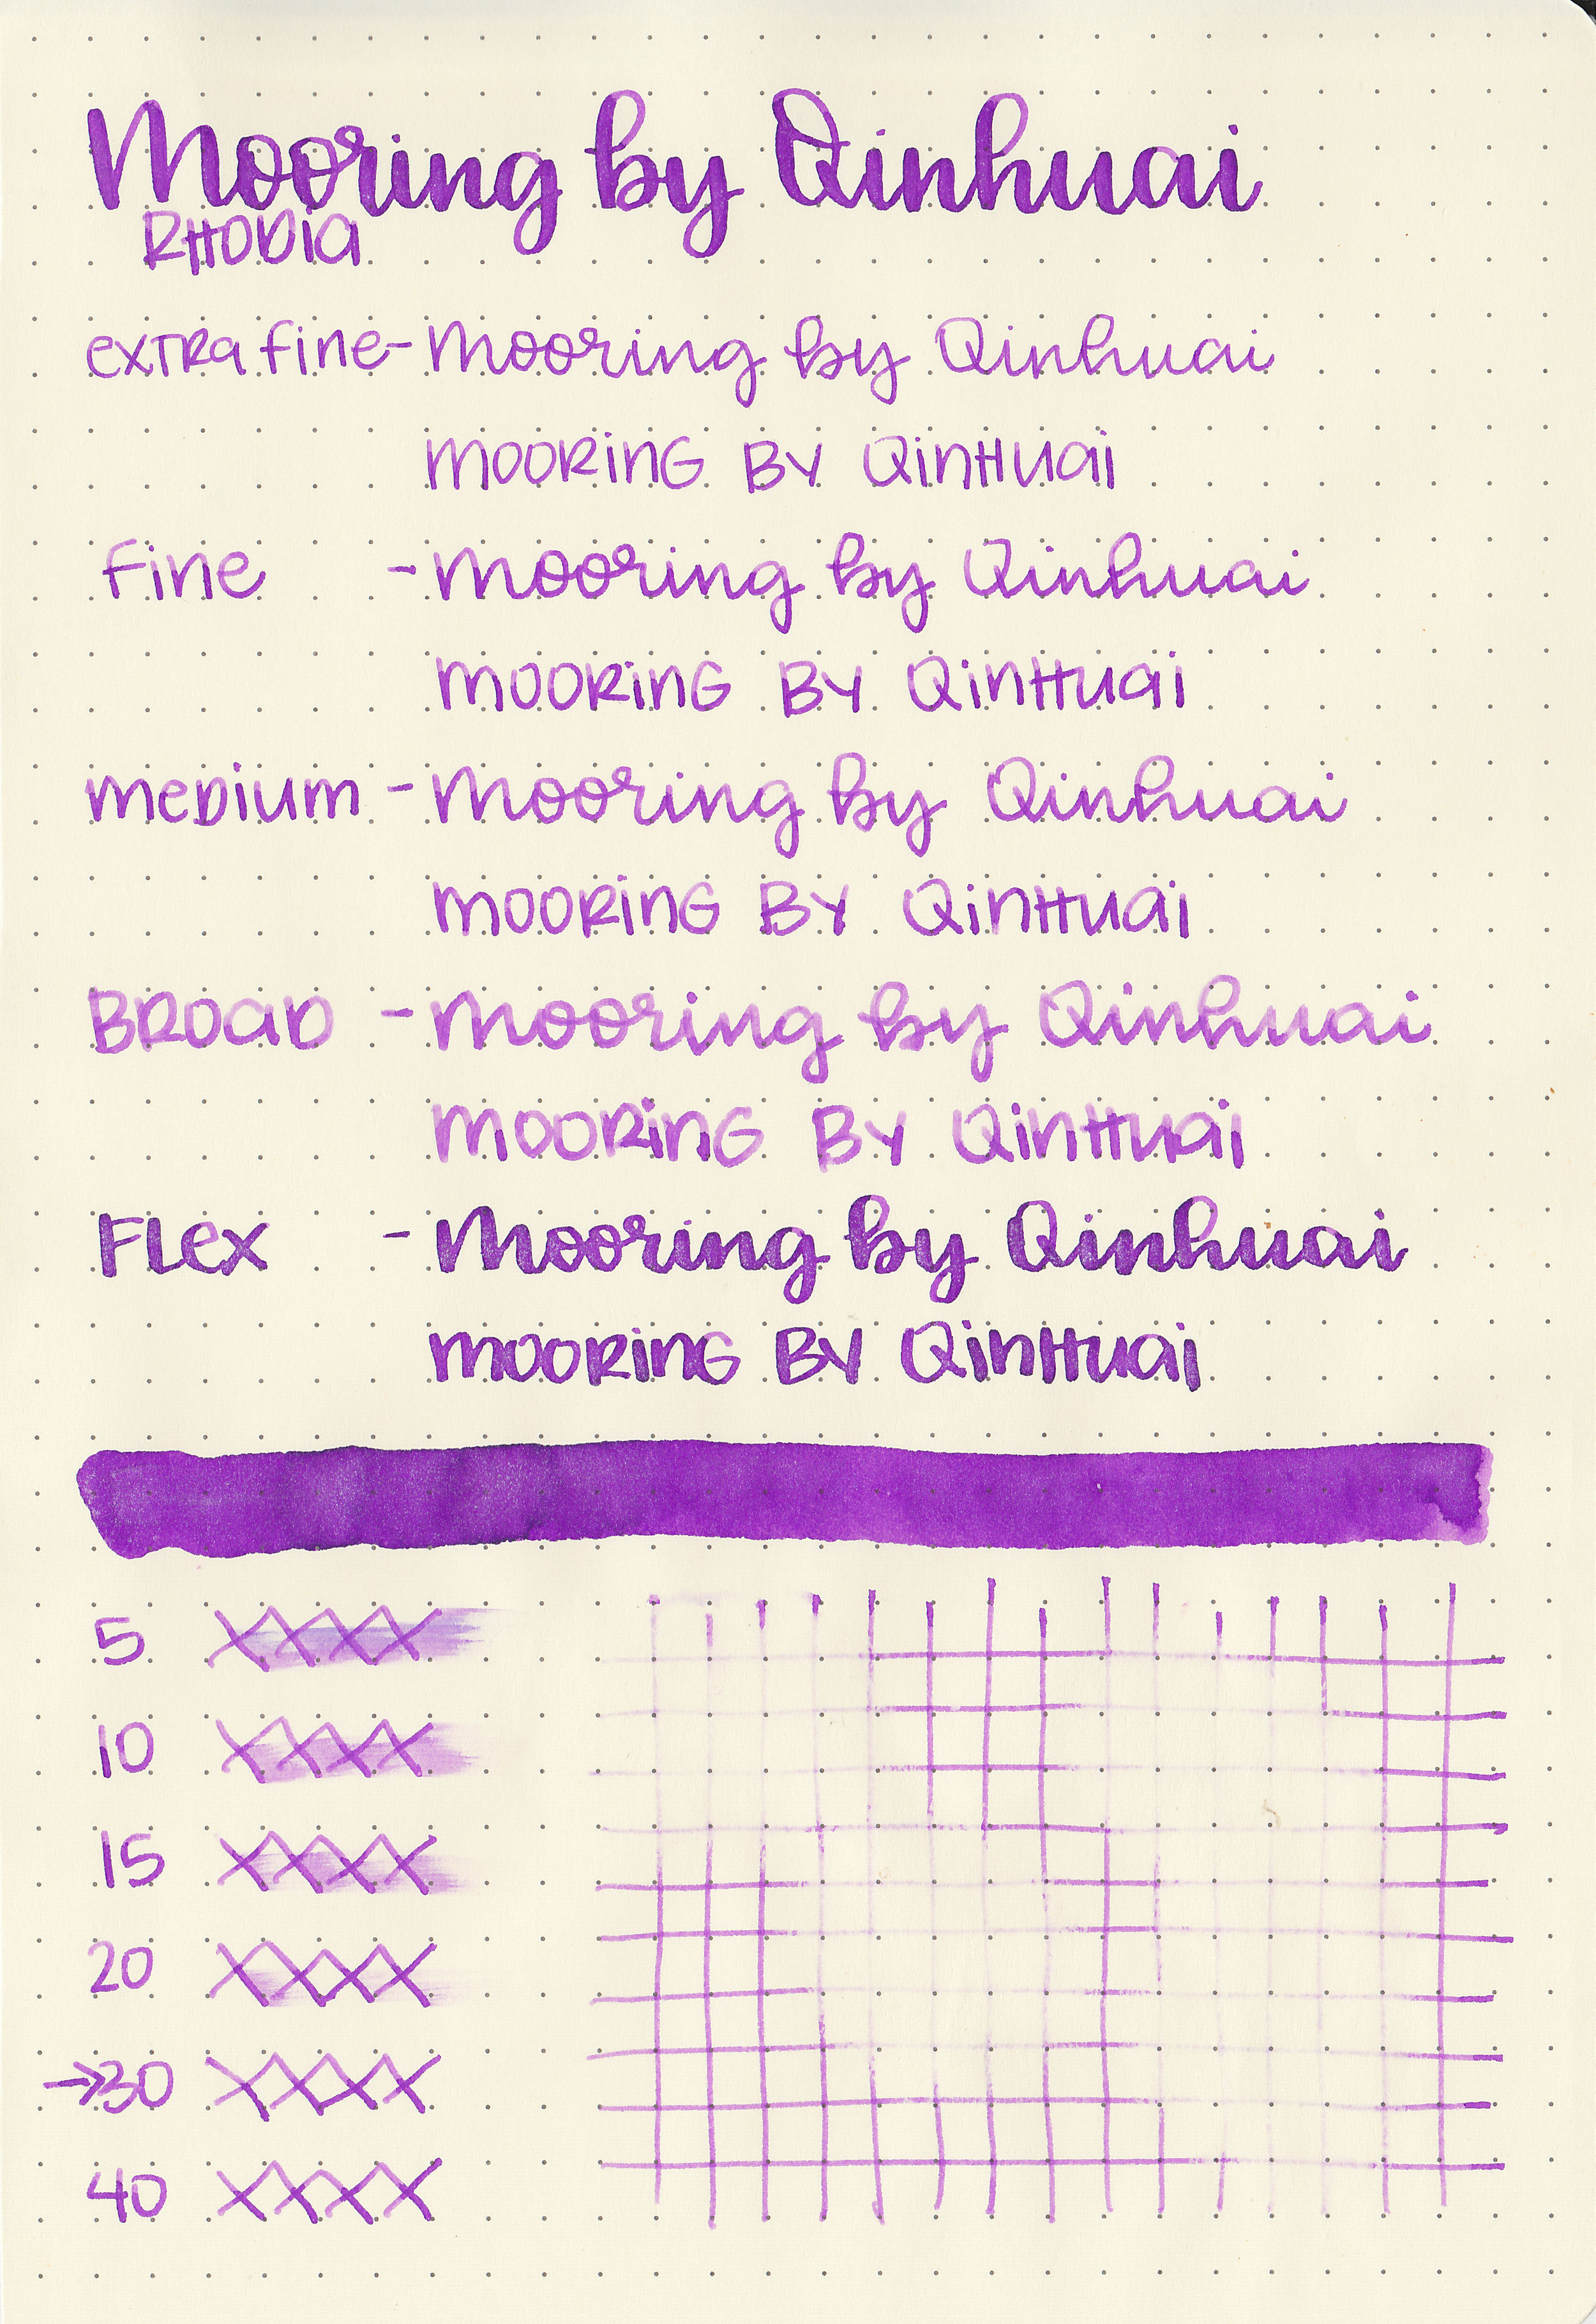 Mooring by Qinhuai
RHODIA
extra fine - Mooring by Qinhuai
MOORING BY QINHUAI
Fine - Mooring by Qinhuai
MOORING BY QINHUAI
medium - Mooring by Qinhuai
MOORING BY QINHUAI
BROAD - Mooring by Qinhuai
MOORING BY QINHUAI
FLex - Mooring by Qinhuai
MOORING BY QINHUAI
5 XXXX
10 XXXX
15 XXXX
20 XXXX
→30 XXXX
40 XXXX